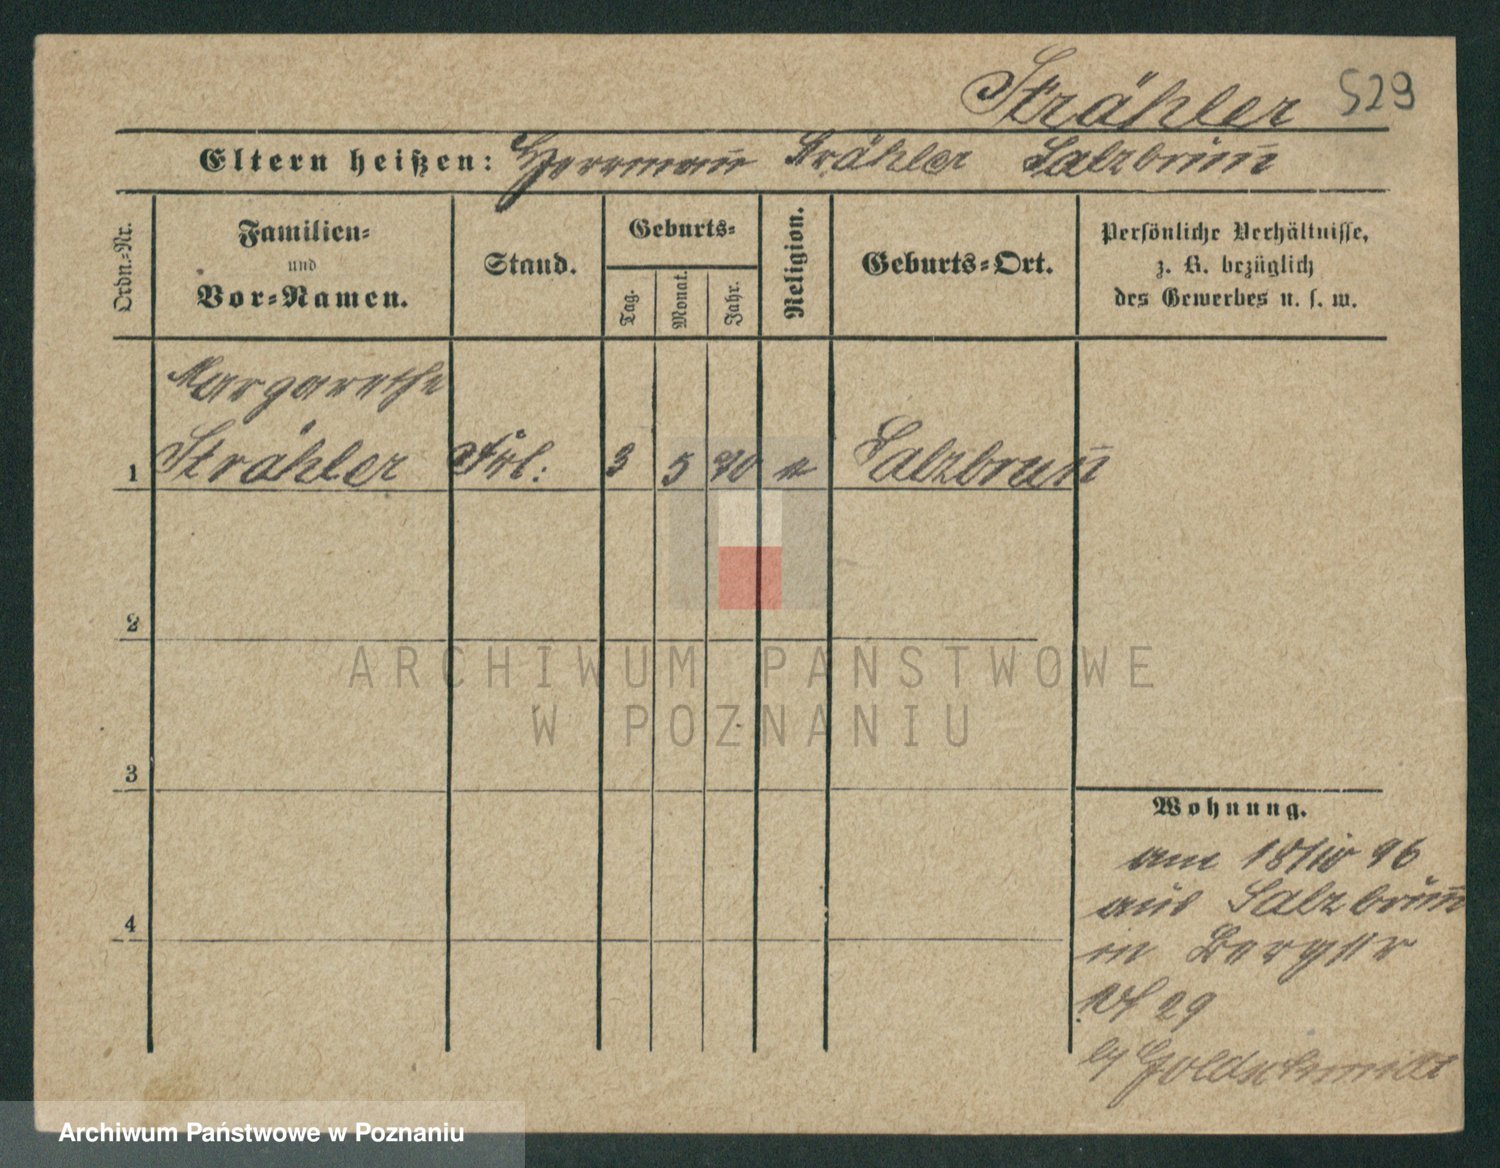 Strähler 529
Eltern heißen: Herrmann Strähler Salzbrunn
Ordn.-Nr.
Familien-
und
Vor-Namen.
Stand.
Geburts-
Tag.
Monat.
Jahr.
Religion.
Geburts-Ort.
Persönliche Verhältnisse,
z. B. bezüglich
des Gewerbes u. s. w.
Margarethe
1 Strähler Frl: 3 5 Salzbrunn
2
3
4
Wohnung.
am 96
aus Salzbrunn
in
29
Goldschmidt
ARCHIWUM PAŃSTWOWE
W POZNANIU
Archiwum Państwowe w Poznaniu